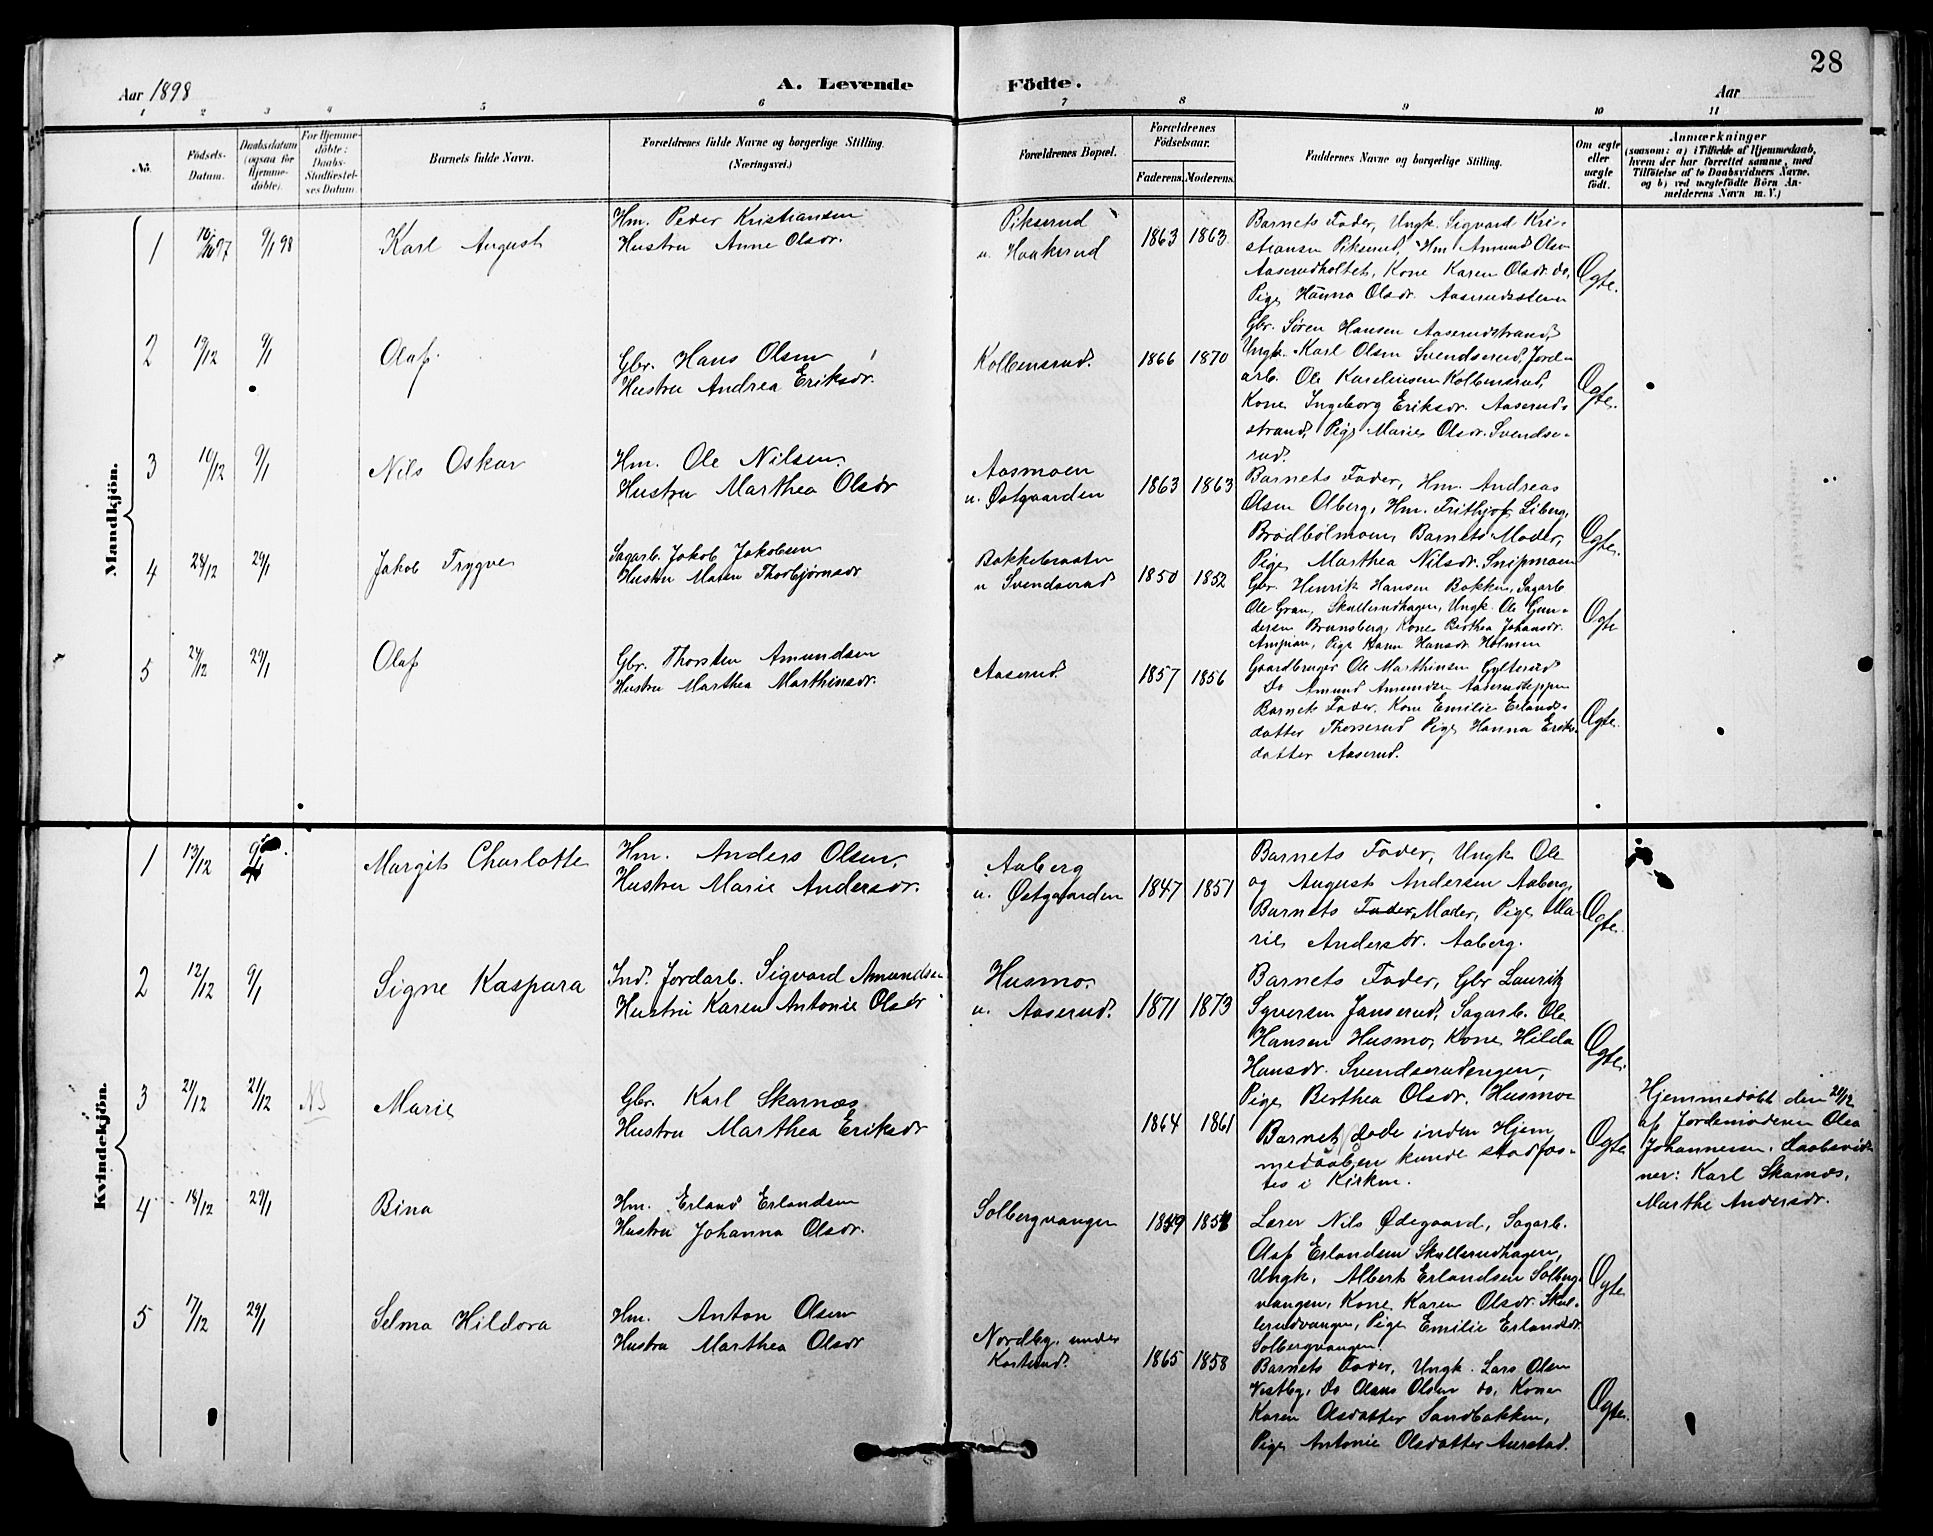 28
Aar 1898
A. Levende Födte.
Aar
1 2 3 4 5 6 7 8 9 10 11
No.
Födsels-Datum.
Daabsdatum (ogsaa for Hjemme-døbte).
For Hjemme-döbte: Daabs-Stadfæstel-ses Datum.
Barnets fulde Navn.
Forældrenes fulde Navne og borgerlige Stilling. (Næringsvei.)
Forældrenes Bopæl.
Forældrenes Födselsaar.
Faderens. Moderens.
Faddernes Navne og borgerlige Stilling.
Om ægte eller uægte födt.
Anmærkninger
(saasom: a) i Tilfælde af Hjemmedaab,
hvem der har forrettet samme, med
Tilföielse af to Daabsvidners Navne.
og b) ved uægtefödte Börn An-
melderens Navn m. V.)
Mandkjön.
1 97 9/1 98 Karl August
Hm. Peder Kristiansen
Hustru Anne Olsdr.
Pikserud
u. Haakerud
1863 1863
Barnets Fader, Ungk. Sigvard Kri-
stiansen Pikserud, Hm Amund Olsen
Aaserudholtet, Kone Karen Olsdr. do,
Pige Hanna Olsdr. Aaserudsstenen
Ægte.
2 19/12 9/1 Olaf.
Gbr. Hans Olsen
Hustru Andrea Eriksdr.
Kolbensrud.
1866 1870
Gbr. Søren Hansen Aaserudstrand,
Ungk. Karl Olsen Svendserud, Jord-
arb. Ole Karelinsen Kolbensrud,
Kone Ingeborg Eriksdr. Aaserud-
strand, Pige Marie Olsdr. Svendse-
rud.
Ægte.
3 10/12 9/1 Nils Oskar
Hm. Ole Nilsen,
Hustru Marthea Olsdr
Aasmoen
u. Østgaarden
1863 1863
Barnets Fader, Hm. Andreas
Olsen Olberg, Hm. Frithjof Liberg,
Brødbølmoen, Barnets Moder,
Pige Marthea Nilsdr. Snipmoen
Ægte.
4 24/12 29/1 Jakob Trygve
Sagarb. Jakob Jakobsen
Hustru Maren Thorbjørnsdr
Bakkebraaten
u Svendserud
1850 1852
Gbr. Henrik Hansen Bakken, Sagarb
Ole Gran, Skullerudhagen, Ungk. Ole Gun-
dersen Brunsberg, Kone Berthea Johansdr.
Ampian, Pige Karen Hansdr. Holmen
Ægte
5 24/12 29/1 Olaf
Gbr. Thorsten Amundsen
Hustru Marthea Marthinsdr.
Aaserud.
1857 1856
Gaardbruger Ole Marthinsen Gylterud
Do Amund Amundsen Aaserudteppen
Barnets Fader, Kone Emilie Erlands-
datter Thorserud Pige Hanna Eriks-
datter Aaserud.
Ægte.
Kvindekjön.
1 13/12 9/1 Margit Charlotte
Hm. Anders Olsen,
Hustru Marie Andersdr.
Aaberg
u. Østgaarden
1847 1851
Barnets Fader, Ungk Ole
og August Andersen Aaberg,
Barnets Fader, Moder, Pige Ma-
rie Andersdr. Aaberg.
Ægte.
2 12/12 9/1 Signe Kaspara
Ind. Jordarb. Sigvard Amundsen
Hustru Karen Antonie Olsdr
Husmo,
u. Aaserud.
1871 1873
Barnets Fader, Gbr Lauritz
Syversen Janserud, Sagarb. Ole
Hansen Husmo, Kone Hilda
Hansdr. Svendserudengen,
Pige Berthea Olsdr. Husmo
Ægte.
3 21/12 21/12 NB Marie
Gbr. Karl Skarnæs
Hustru Marthea Eriksdr
1864 1861
Barnet døde inden Hjem
medaaben kunde stadfæs-
tes i Kirken.
Ægte
Hjemmedøbt den 21/12
af Jordemoderen Olea
Johannessen. Daabsvid-
ner: Karl Skarnæs,
Marthe Andersdr.
4 18/12 29/1 Bina
Hm. Erland Erlandsen
Hustru Johanna Olsdr.
Solbergvangen
1849 1851
Lærer Nils Ødegaard, Sagarb.
Olaf Erlandsen Skullerudhagen,
Ungk. Albert Erlandsen Solberg-
vangen, Kone Karen Olsdr. Skul-
lerudvangen, Pige Emilie Erlandsdr
Solbergvangen.
Ægte
5 17/12 29/1 Selma Hildora
Hm. Anton Olsen
Hustru Marthea Olsdr
Nordby, under
Kasterud.
1865 1858
Barnets Fader, Ungk. Lars Olsen
Vestby, do Olaus Olsen do, Kone
Karen Olsdatter Sandbakken,
Pige Antonie Olsdatter Aurstad.
Ægte.